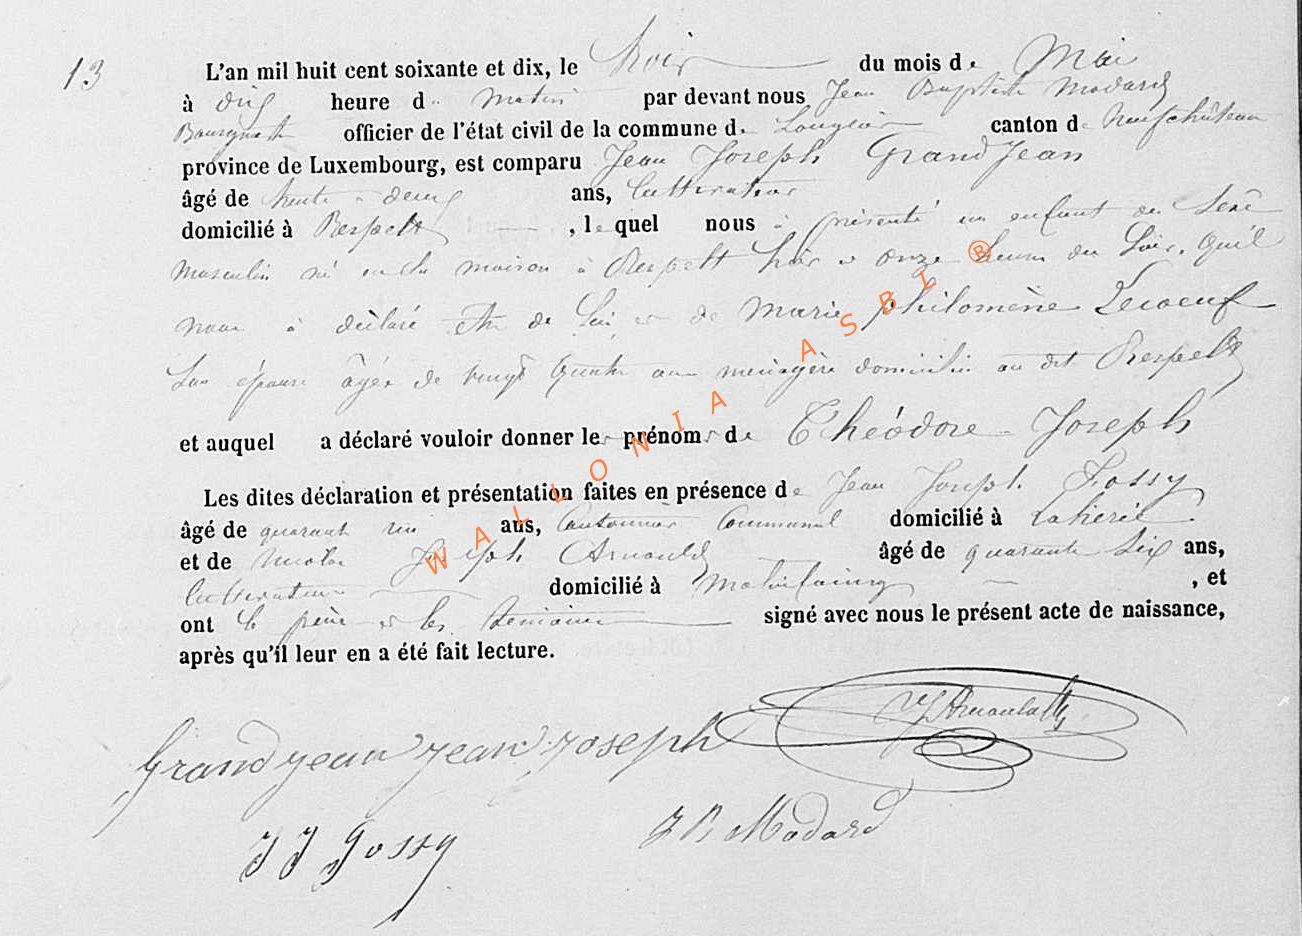 13
L'an mil huit cent soixante et dix, le trois du mois de Mai
à dix heure du matin par devant nous Jean Baptiste Modard
Bourgmestre officier de l'état civil de la commune de Longlier canton de Neufchâteau
province de Luxembourg, est comparu Jean Joseph GrandJean
âgé de trente deux ans, Cultivateur
domicilié à Respelt, lequel nous a présenté un enfant du sexe
masculin né en sa maison à Respelt hier à onze heures du soir, qu'il
nous a déclaré être de lui et de Marie philomène Lecoeuf
son épouse âgée de vingt quatre ans ménagère domiciliée au dit Respelt
et auquel a déclaré vouloir donner les prénoms de Théodore Joseph
Les dites déclaration et présentation faites en présence de Jean Joseph Gossy
âgé de quarante ans, Cantonnier Communal domicilié à Laherie
et de Nicolas Joseph Arnould âgé de quarante six ans,
Cultivateur domicilié à Molinfaing, et
ont le père et les témoins signé avec nous le présent acte de naissance,
après qu'il leur en a été fait lecture.
Grandjean jean joseph
Arnould
J J Gossy
J B Modard
WALLONIA ASBL ®